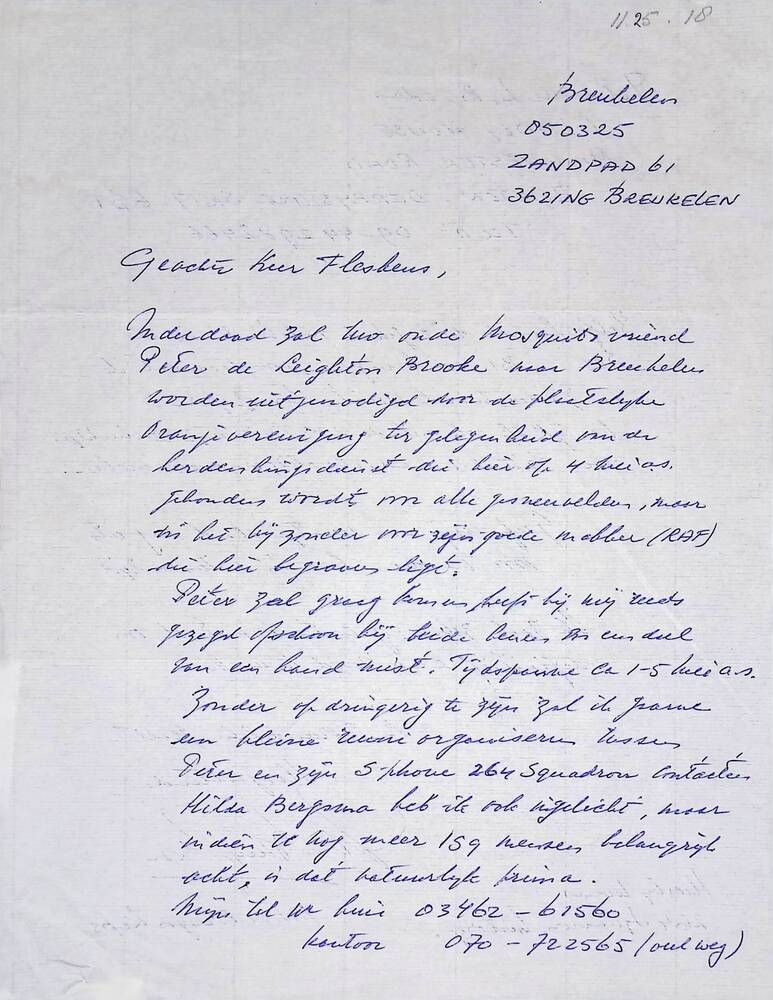 1125.18
Breukelen
050325
ZANDPAD 61
3621NG BREUKELEN
Geachte Heer Fleskens,
Inderdaad zal onze Mosquito vriend
Peter de Leighton Brooke naar Breukelen
worden uitgenodigd door de plaatselyke
Oranjevereniging ter gelegenheid van de
herdenkingsdienst die hier op 4 Mei a.s.
gehouden wordt voor alle gesneuvelden, maar
in het byzonder voor zijn goede makker (RAF)
die hier begraven ligt.
Peter zal graag komen heeft hij mij reeds
gezegd ofschoon hij beide benen en een deel
van een hand mist. Tijdspanne ca 1-5 Mei a.s.
Zonder opdringerig te zijn zal ik gaarne
een kleine reunie organiseren tussen
Peter en zijn S-phone 264 Squadron contacten
Hilda Bergsma heb ik ook ingelicht, maar
indien U nog meer mensen belangrijk
acht, is dat natuurlyk prima.
Mijn tel nr huis 03462-61560
kantoor 070-722565 (veel weg)